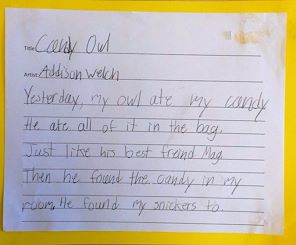 Title: Candy Owl
Artist: Addison Welch
Yesterday, my owl ate my candy
He ate all of it in the bag.
Just like his best freind Mag
Then he found the candy in my
room. He found my snickers to.